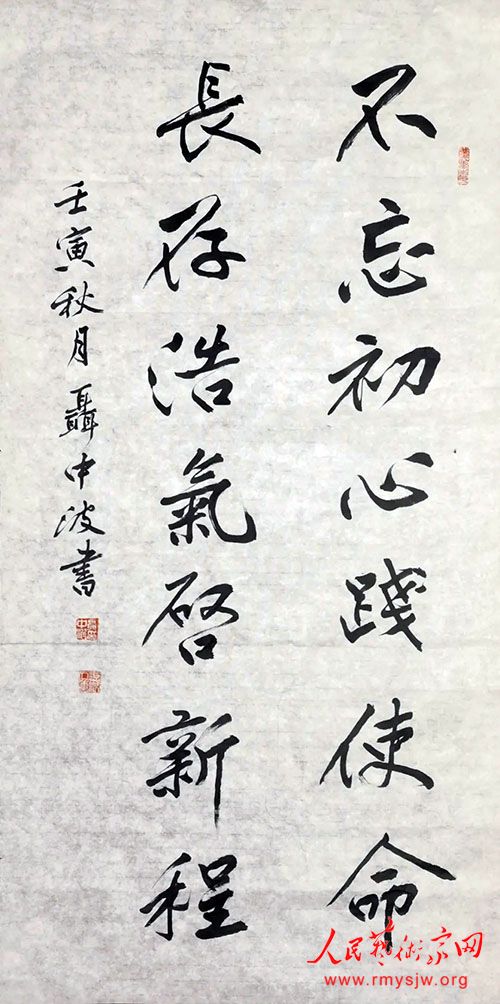 不忘初心踐使命
長存浩氣啓新程
壬寅秋月聶中波書
人民藝術家网
www.rmysjw.org